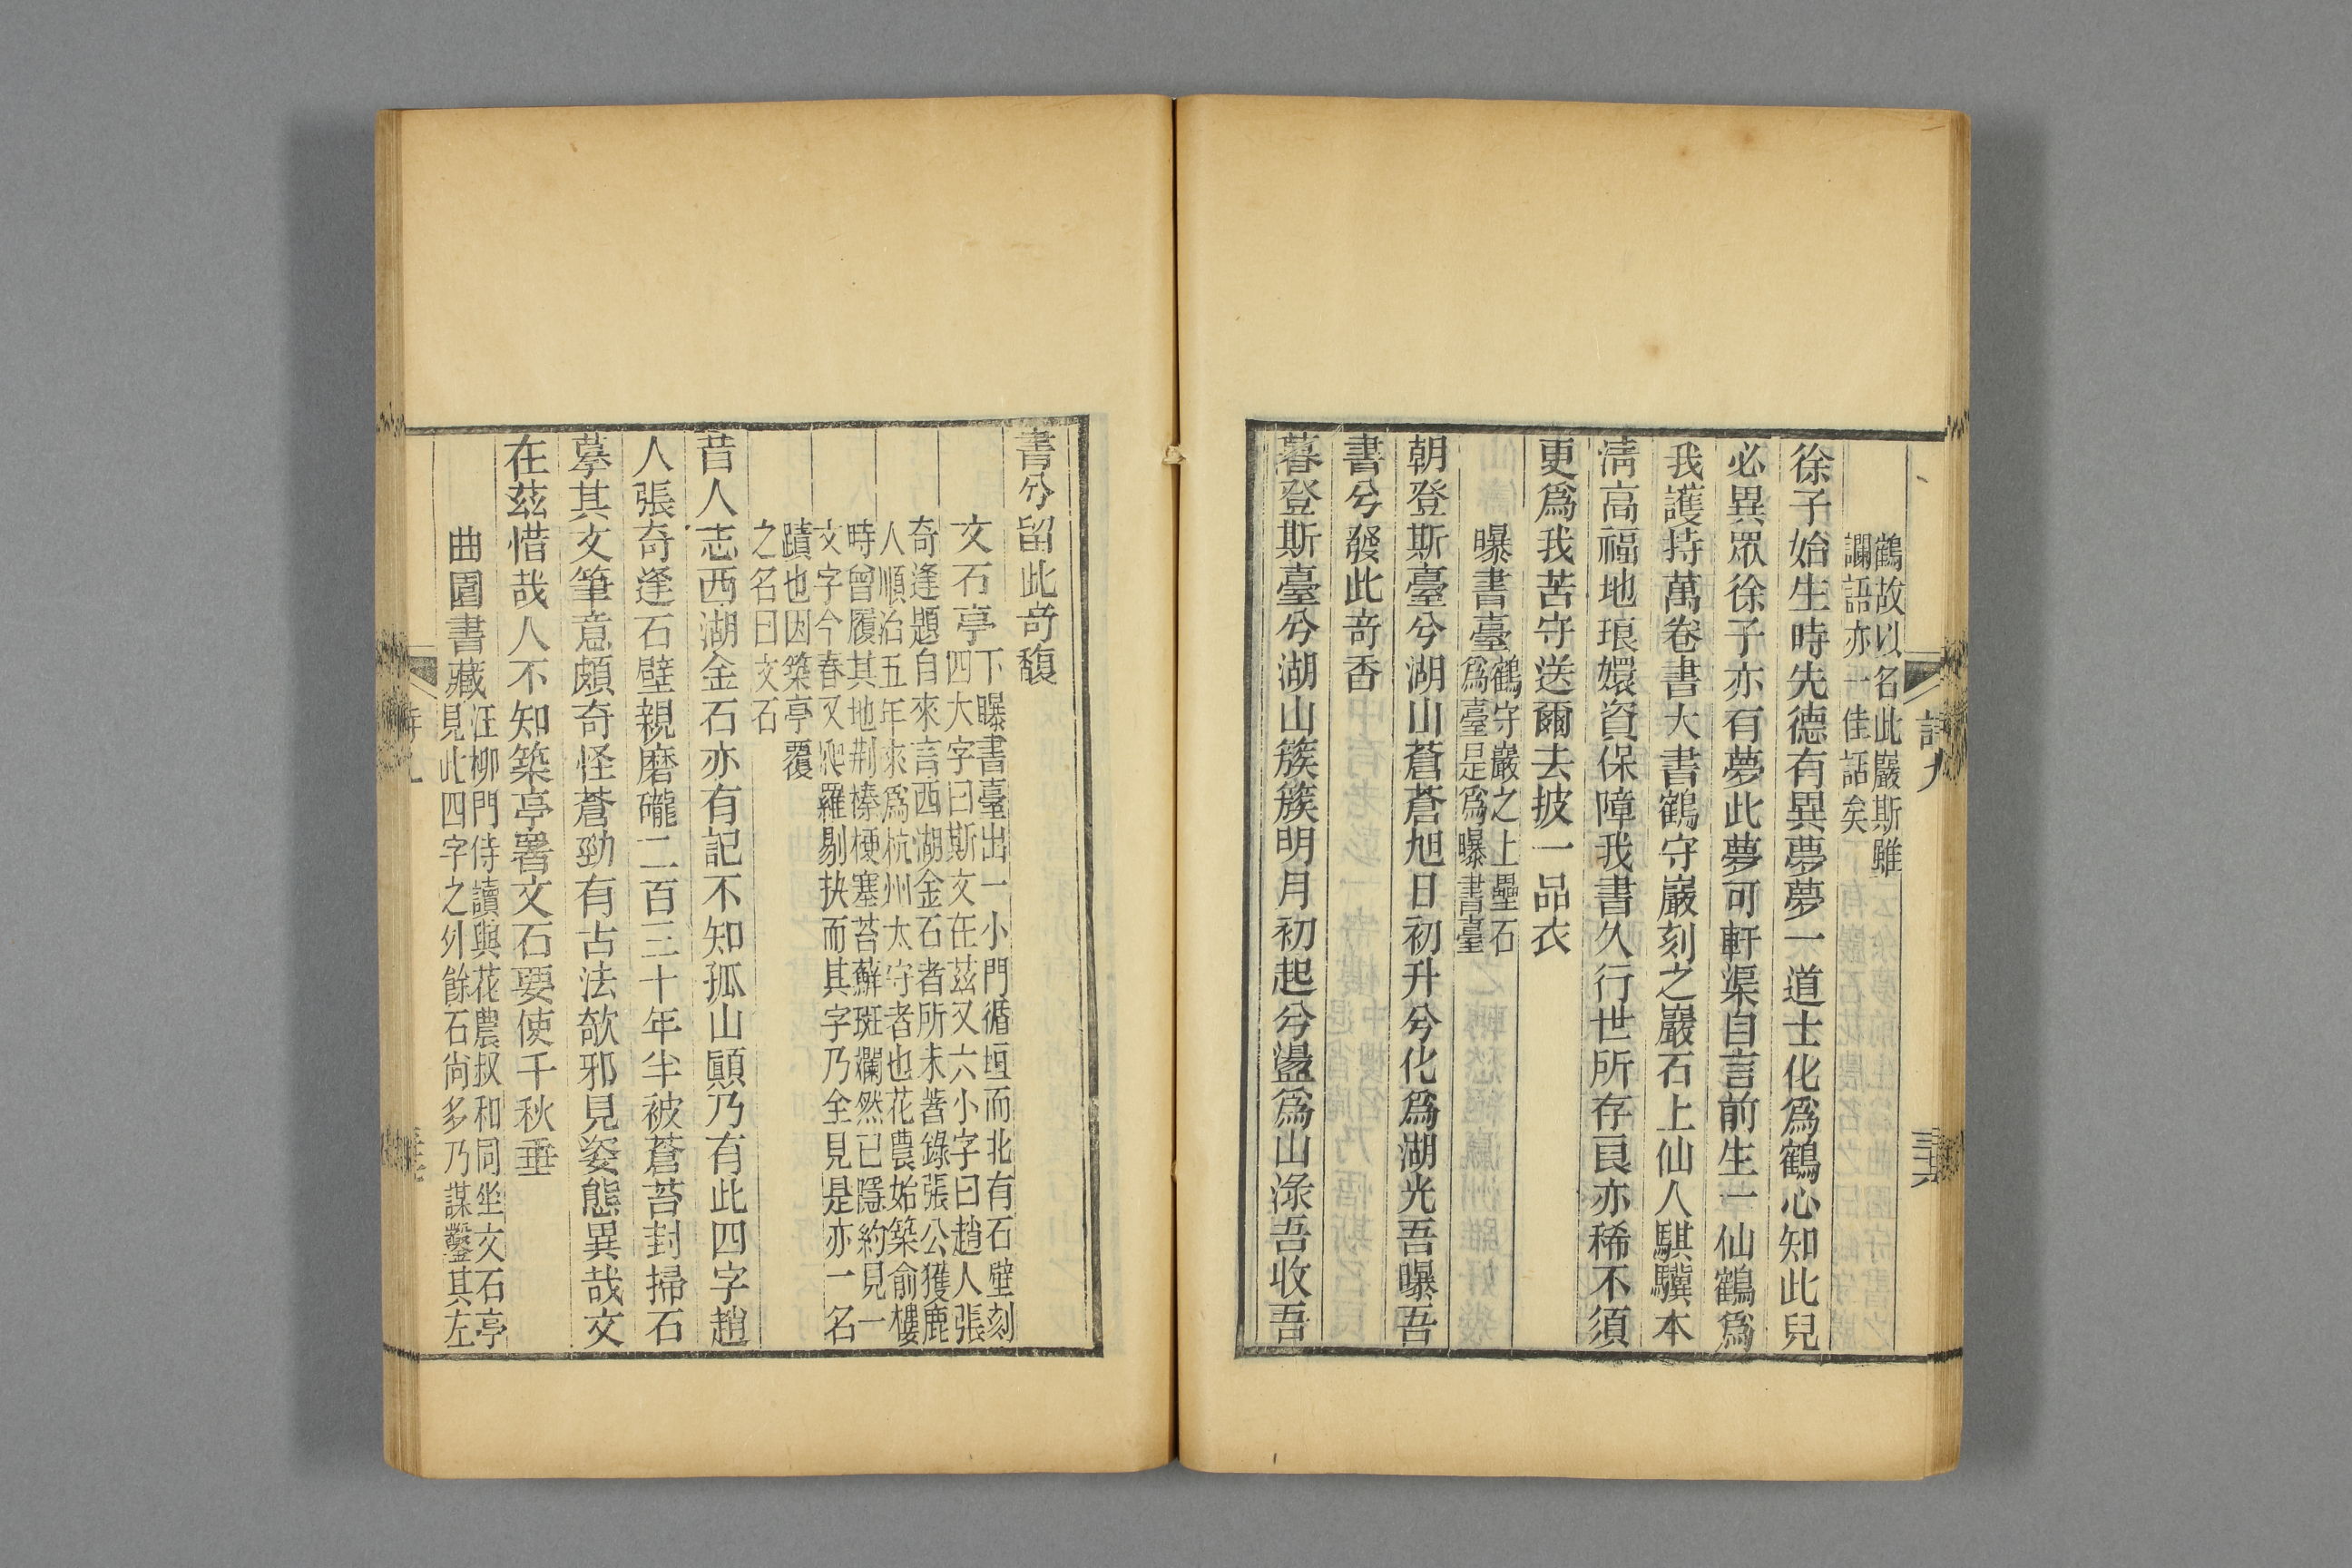 鶴故以名此巖斯雖
讕語亦一佳話矣
徐子始生時先德有異夢夢一道士化爲鶴心知此兒
必異眾徐子亦有夢此夢可軒渠自言前生一仙鶴爲
我護持萬卷書大書鶴守巖刻之巖石上仙人騏驥本
淸高福地琅嬛資保障我書久行世所存良亦稀不須
更爲我苦守送爾去披一品衣
曝書臺鶴守巖之上壘石
爲臺是爲曝書臺
朝登斯臺兮湖山蒼蒼旭日初升兮化爲湖光吾曝吾
書兮發此奇香
暮登斯臺兮湖山簇簇明月初起兮盪爲山淥吾收吾
詩九
書兮留此奇馥
文石亭下曝書臺出一小門循垣而北有石壁刻
四大字曰斯文在茲又六小字曰趙人張
奇逢題自來言西湖金石者所未著錄張公獲鹿
人順治五年來爲杭州太守者也花農始築俞樓
時曾履其地荆榛梗塞苔蘚斑斕然已隱約見一
文字今春又爬羅剔抉而其字乃全見是亦一名
蹟也因築亭覆
之名曰文石
昔人志西湖金石亦有記不知孤山顚乃有此四字趙
人張奇逢石壁親磨礲二百三十年半被蒼苔封掃石
摹其文筆意頗奇怪蒼勁有古法欹邪見姿態異哉文
在茲惜哉人不知築亭署文石要使千秋垂
曲園書藏汪柳門侍讀與花農叔和同坐文石亭
見此四字之外餘石尙多乃謀鑿其左